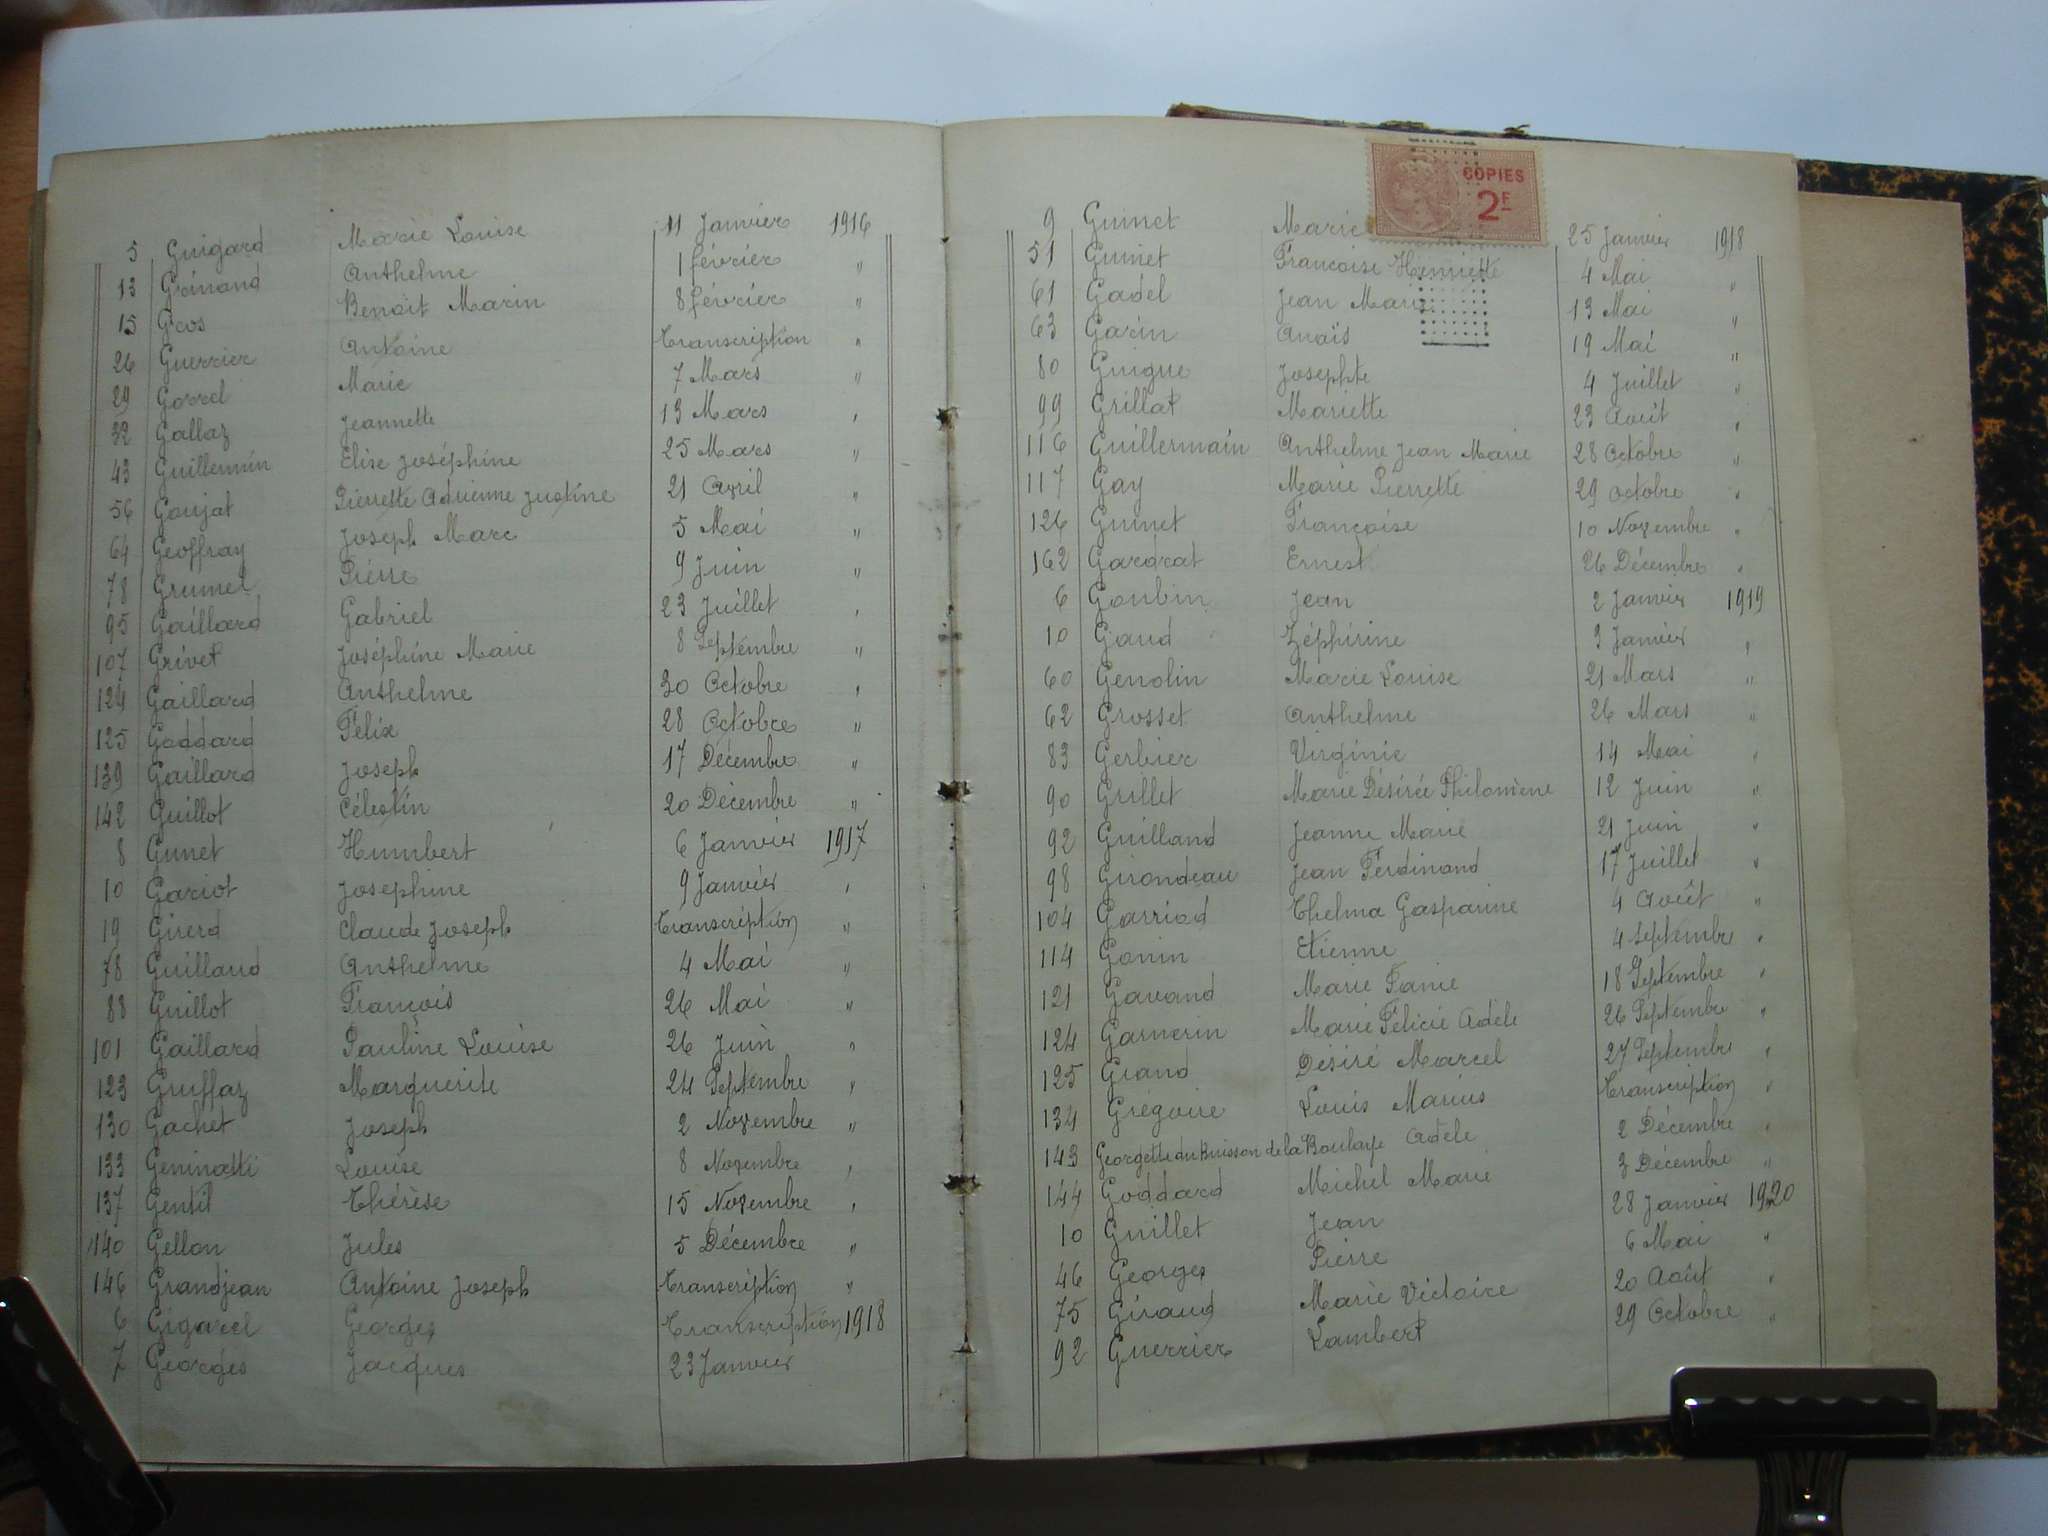 5 Guigard Marie Louise 11 Janvier 1916
13 Grinand Anthelme 1 février "
15 Gros Benoit Marin 8 février "
26 Guerrier Antoine Transcription "
29 Marie 7 Mars "
32 Gallaz Jeannette 13 Mars "
43 Guillermin Elise Joséphine 25 Mars "
56 Goujat Pierrette Adrienne Justine 21 Avril "
64 Geoffray Joseph Marc 5 Mai "
78 Grumel Pierre 9 Juin "
95 Gaillard Gabriel 23 Juillet "
107 Grivet Joséphine Marie 8 Septembre "
124 Gaillard Anthelme 30 Octobre "
125 Goddard Félix 28 Octobre "
139 Gaillard Joseph 17 Décembre "
142 Guillot Célestin 20 Décembre "
8 Gunet Humbert 6 Janvier 1917
10 Gariot Josephine 9 Janvier "
19 Girerd Claude Joseph Transcription "
78 Guilland Anthelme 4 Mai "
88 Guillot François 26 Mai "
101 Gaillard Pauline Louise 26 Juin "
123 Gruffaz Marguerite 24 Septembre "
130 Gachet Joseph 2 Novembre "
133 Geninatti Louise 8 Novembre "
137 Gentil Thérèse 15 Novembre "
140 Gellon Jules 5 Décembre "
146 Grandjean Antoine Joseph Transcription "
6 Georges Transcription 1918
7 Georges Jacques 23 Janvier
COPIES
2F
9 Guinet Marie 25 Janvier 1918
51 Guinet Francoise Henriette 4 Mai "
61 Gadel Jean Marie 13 Mai "
63 Garin Anaïs 19 Mai "
80 Guigue Josephte 4 Juillet "
99 Grillat Mariette 23 Août "
116 Guillermain Anthelme Jean Marie 28 Octobre "
117 Gay Marie Pierrette 29 Octobre "
126 Guinet Françoise 10 Novembre "
162 Gardrat Ernest 26 Décembre "
6 Goubin Jean 2 Janvier 1919
10 Gaud Zéphirine 3 Janvier "
60 Genolin Marie Louise 21 Mars "
62 Grosset Anthelme 26 Mars "
83 Gerbier Virginie 14 Mai "
90 Grillet Marie Désirée Philomène 12 Juin "
92 Guilland Jeanne Marie 21 Juin "
98 Girondeau Jean Ferdinand 17 Juillet "
104 Garriod Thelma Gasparine 4 Août "
114 Gonin Etienne 4 Septembre "
121 Gavand Marie Fanie 18 Septembre "
124 Garnerin Marie Félicie Adèle 26 Septembre "
125 Grand Désiré Marcel 27 Septembre "
134 Grégoire Louis Marius Transcription "
143 Georgette du Buisson de la Boulaye Adèle 2 Décembre "
144 Goddard Michel Marie 3 Décembre "
10 Guillet Jean 28 Janvier 1920
46 Georges Pierre 6 Mai "
75 Giraud Marie Victoire 20 Août "
92 Guerrier Lambert 29 Octobre "